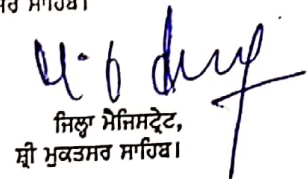 ਸਾਹਿਬ।
ਜਿਲ੍ਹਾ ਮੈਜਿਸਟ੍ਰੇਟ,
ਸ਼੍ਰੀ ਮੁਕਤਸਰ ਸਾਹਿਬ।